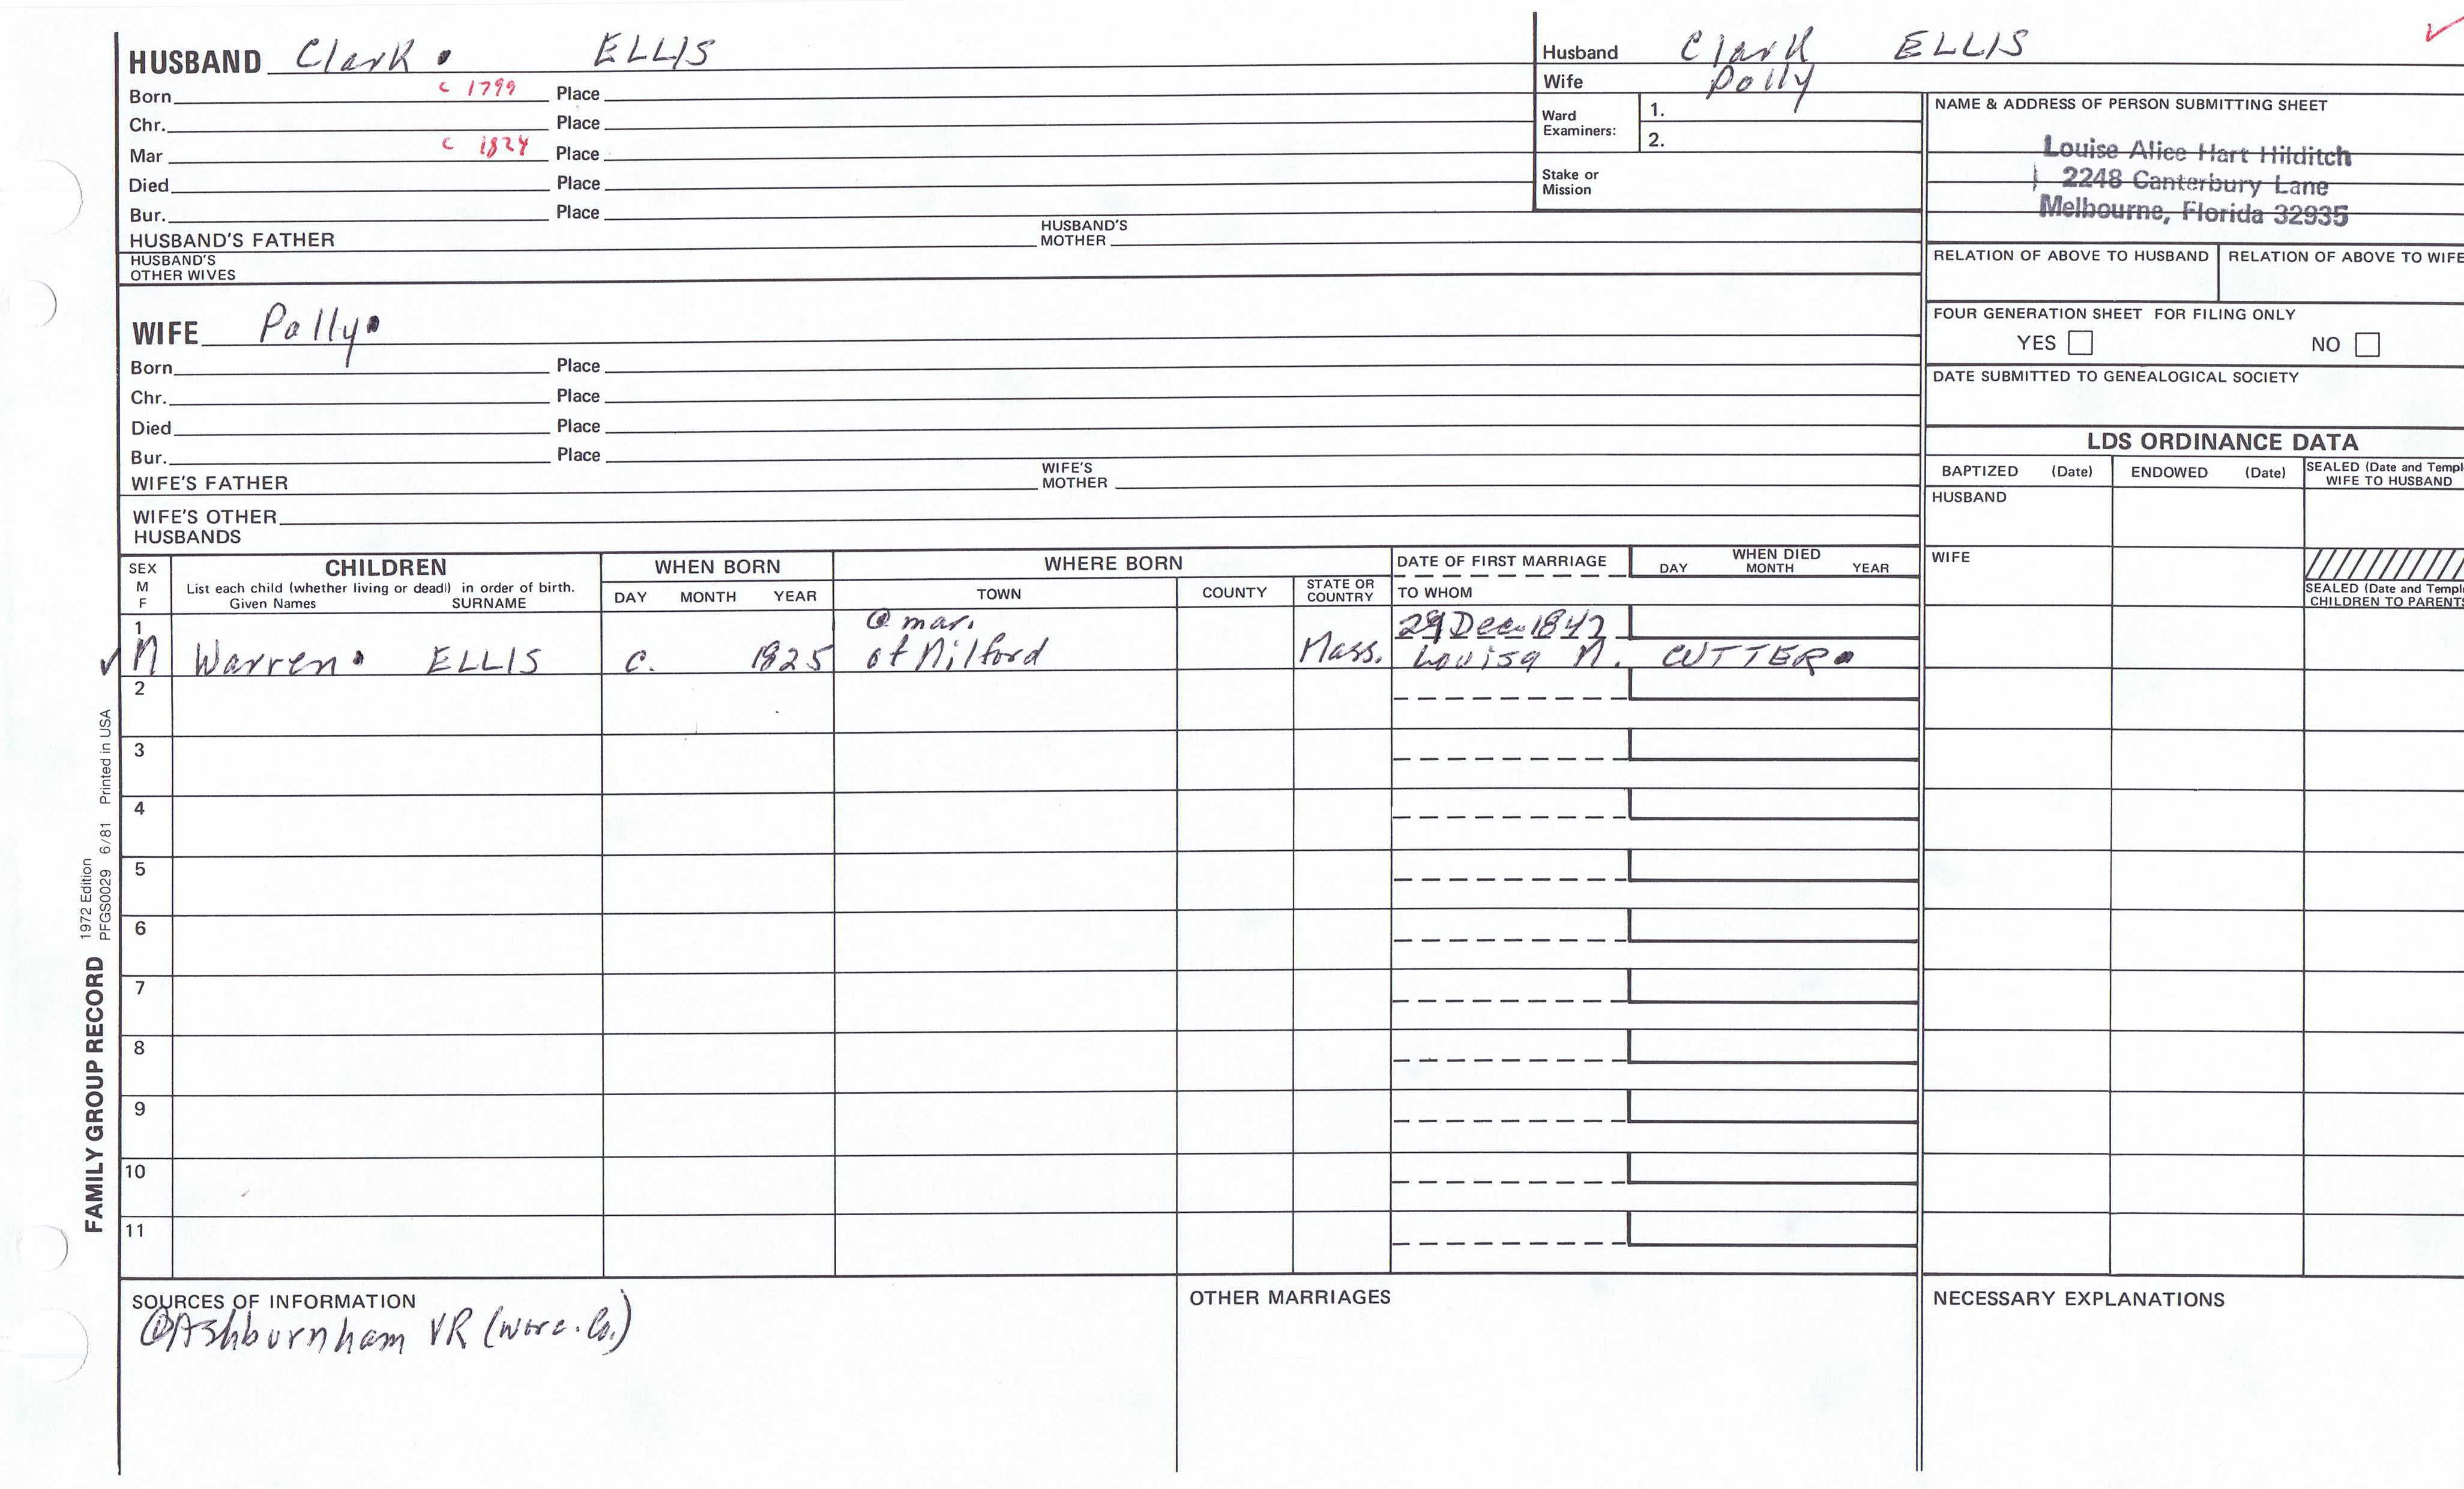 HUSBAND Clark ELLIS
Born c 1799 Place
Chr. Place
Mar c 1824 Place
Died Place
Bur. Place
HUSBAND'S FATHER HUSBAND'S MOTHER
HUSBAND'S
OTHER WIVES
WIFE Polly
Born Place
Chr. Place
Died Place
Bur. Place
WIFE'S FATHER WIFE'S MOTHER
WIFE'S OTHER
HUSBANDS
Husband Clark ELLIS
Wife Polly
Ward Examiners: 1.
2.
Stake or
Mission
NAME & ADDRESS OF PERSON SUBMITTING SHEET
Louise Alice Hart Hilditch
2248 Canterbury Lane
Melbourne, Florida 32935
RELATION OF ABOVE TO HUSBAND RELATION OF ABOVE TO WIFE
FOUR GENERATION SHEET FOR FILING ONLY
YES NO
DATE SUBMITTED TO GENEALOGICAL SOCIETY
LDS ORDINANCE DATA
BAPTIZED (Date) ENDOWED (Date) SEALED (Date and Templ
WIFE TO HUSBAND
HUSBAND
WIFE
SEALED (Date and Templ
CHILDREN TO PARENTS
SEX
M
F
CHILDREN
List each child (whether living or dead) in order of birth.
Given Names SURNAME
WHEN BORN
DAY MONTH YEAR
WHERE BORN
TOWN COUNTY STATE OR COUNTRY
DATE OF FIRST MARRIAGE
TO WHOM
WHEN DIED
DAY MONTH YEAR
1 @ mar. 29 Dec 1847
M Warren ELLIS c. 1825 of Milford Mass. Louisa M. CUTTER
2
3
4
5
6
7
8
9
10
11
SOURCES OF INFORMATION
@Ashburnham VR (Worc. Co.)
OTHER MARRIAGES
NECESSARY EXPLANATIONS
FAMILY GROUP RECORD
1972 Edition
PFGS0029 6/81 Printed in USA